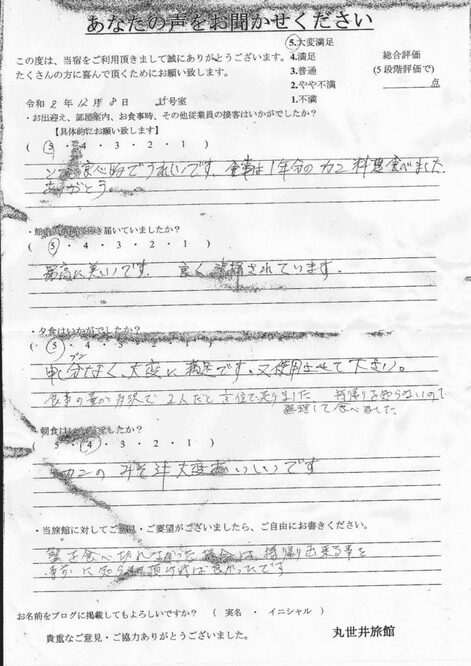 あなたの声をお聞かせください
この度は、当宿をご利用頂きまして誠にありがとうございます。
たくさんの方に喜んで頂くためにお願い致します。
5.大変満足
4.満足
3.普通
2.やや不満
1.不満
総合評価
(5段階評価で)
点
令和 2年 12月 8日 25号室
・お出迎え、部屋案内、お食事時、その他従業員の接客はいかがでしたか?
【具体的にお願い致します】
( 5 ・ 4 ・ 3 ・ 2 ・ 1 )
良心的でうれしいです、食事は1年分のカニ料理食べました
ありがとう。
き届いていましたか?
( 5 ・ 4 ・ 3 ・ 2 ・ 1 )
最高に美しいです。 良く 清掃されています。
・夕食はいかがでしたか?
( 5 ・ 4 ・ 3 ・ 2 ・ 1 )
申し分なく、大変に満足です。又使用させて下さい。
食事の量が 2人だと
持帰りを知らないので
無理して食べました
・朝食はいかがでしたか?
( 5 ・ 4 ・ 3 ・ 2 ・ 1 )
カニのみそ汁大変おいしいです
・当旅館に対してご意見・ご要望がございましたら、ご自由にお書きください。
蟹を食べ切れなかった場合は、持帰り出来る事を
事前に知らせ頂ければ良かったです
お名前をブログに掲載してもよろしいですか? ( 実名 ・ イニシャル )
貴重なご意見・ご協力ありがとうございました。
丸世井旅館